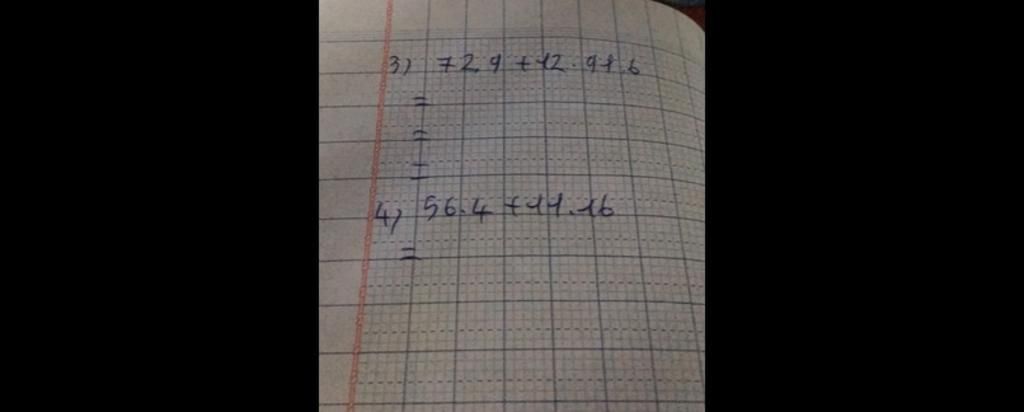 3) 72.9 + 12.91.6
=
=
=
4) 56.4 + 11.16
=